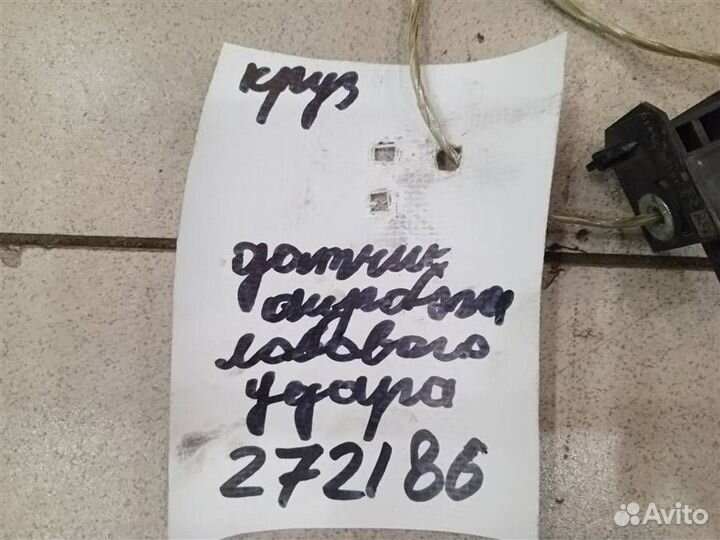 круз
датчик
аирбега
лобового
удара
272186
Avito